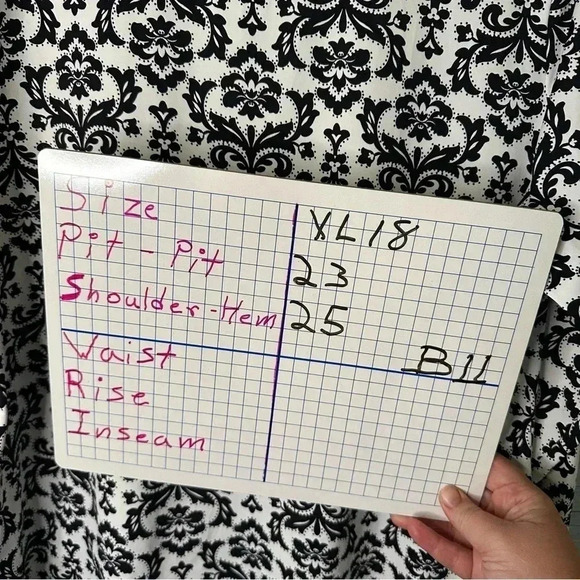 Size XL 18
Pit - Pit 23
Shoulder-Hem 25
Waist B11
Rise
Inseam